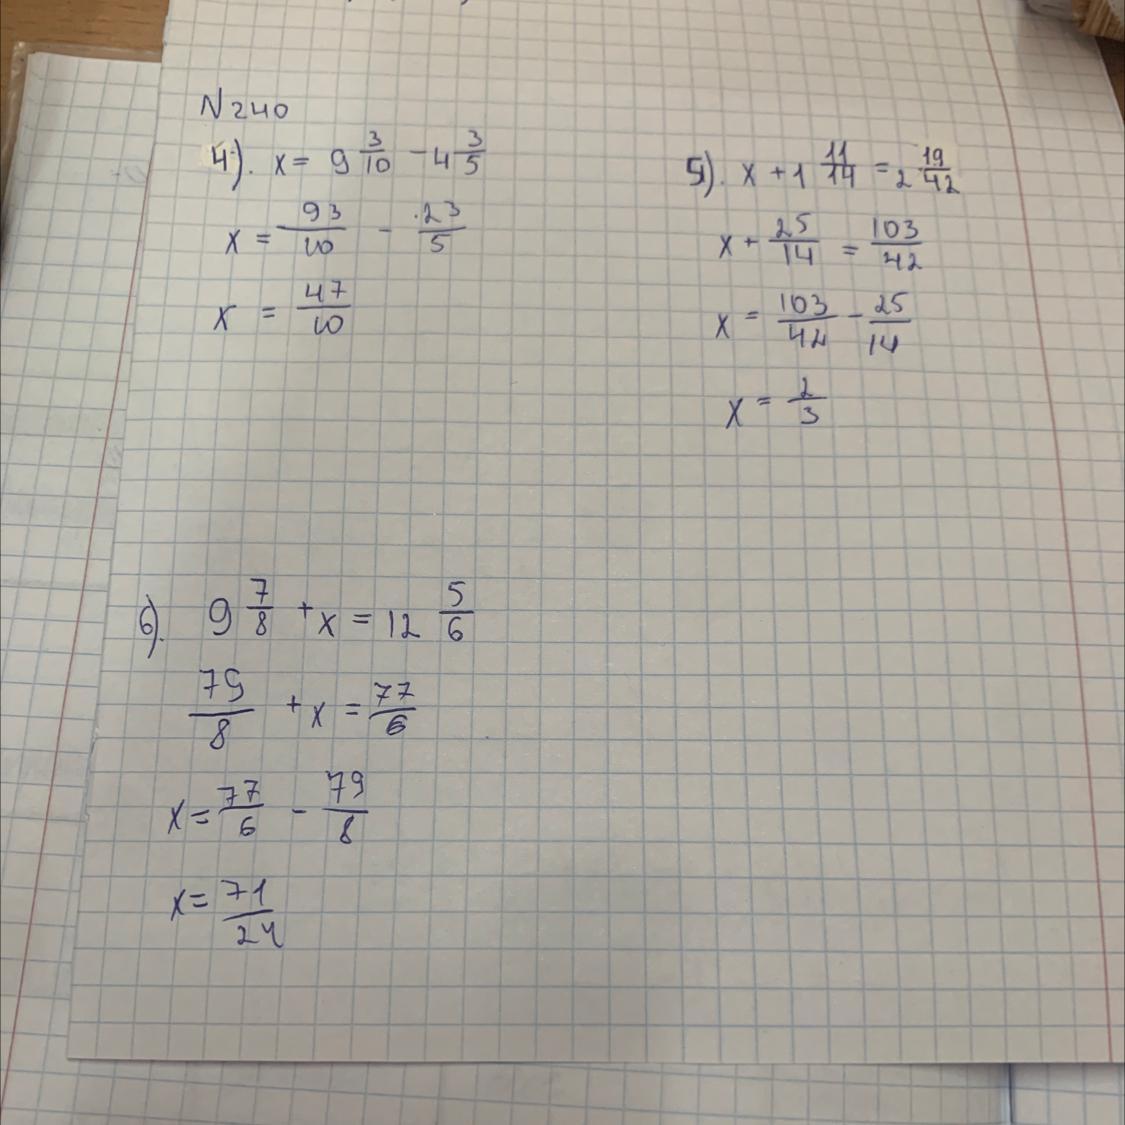 N240
4). x = 9 3/10 - 4 3/5
x = 93/10 - 23/5
x = 47/10
5). x + 1 11/14 = 2 19/42
x + 25/14 = 103/42
x = 103/42 - 25/14
x = 2/3
6). 9 7/8 + x = 12 5/6
79/8 + x = 77/6
x = 77/6 - 79/8
x = 71/24